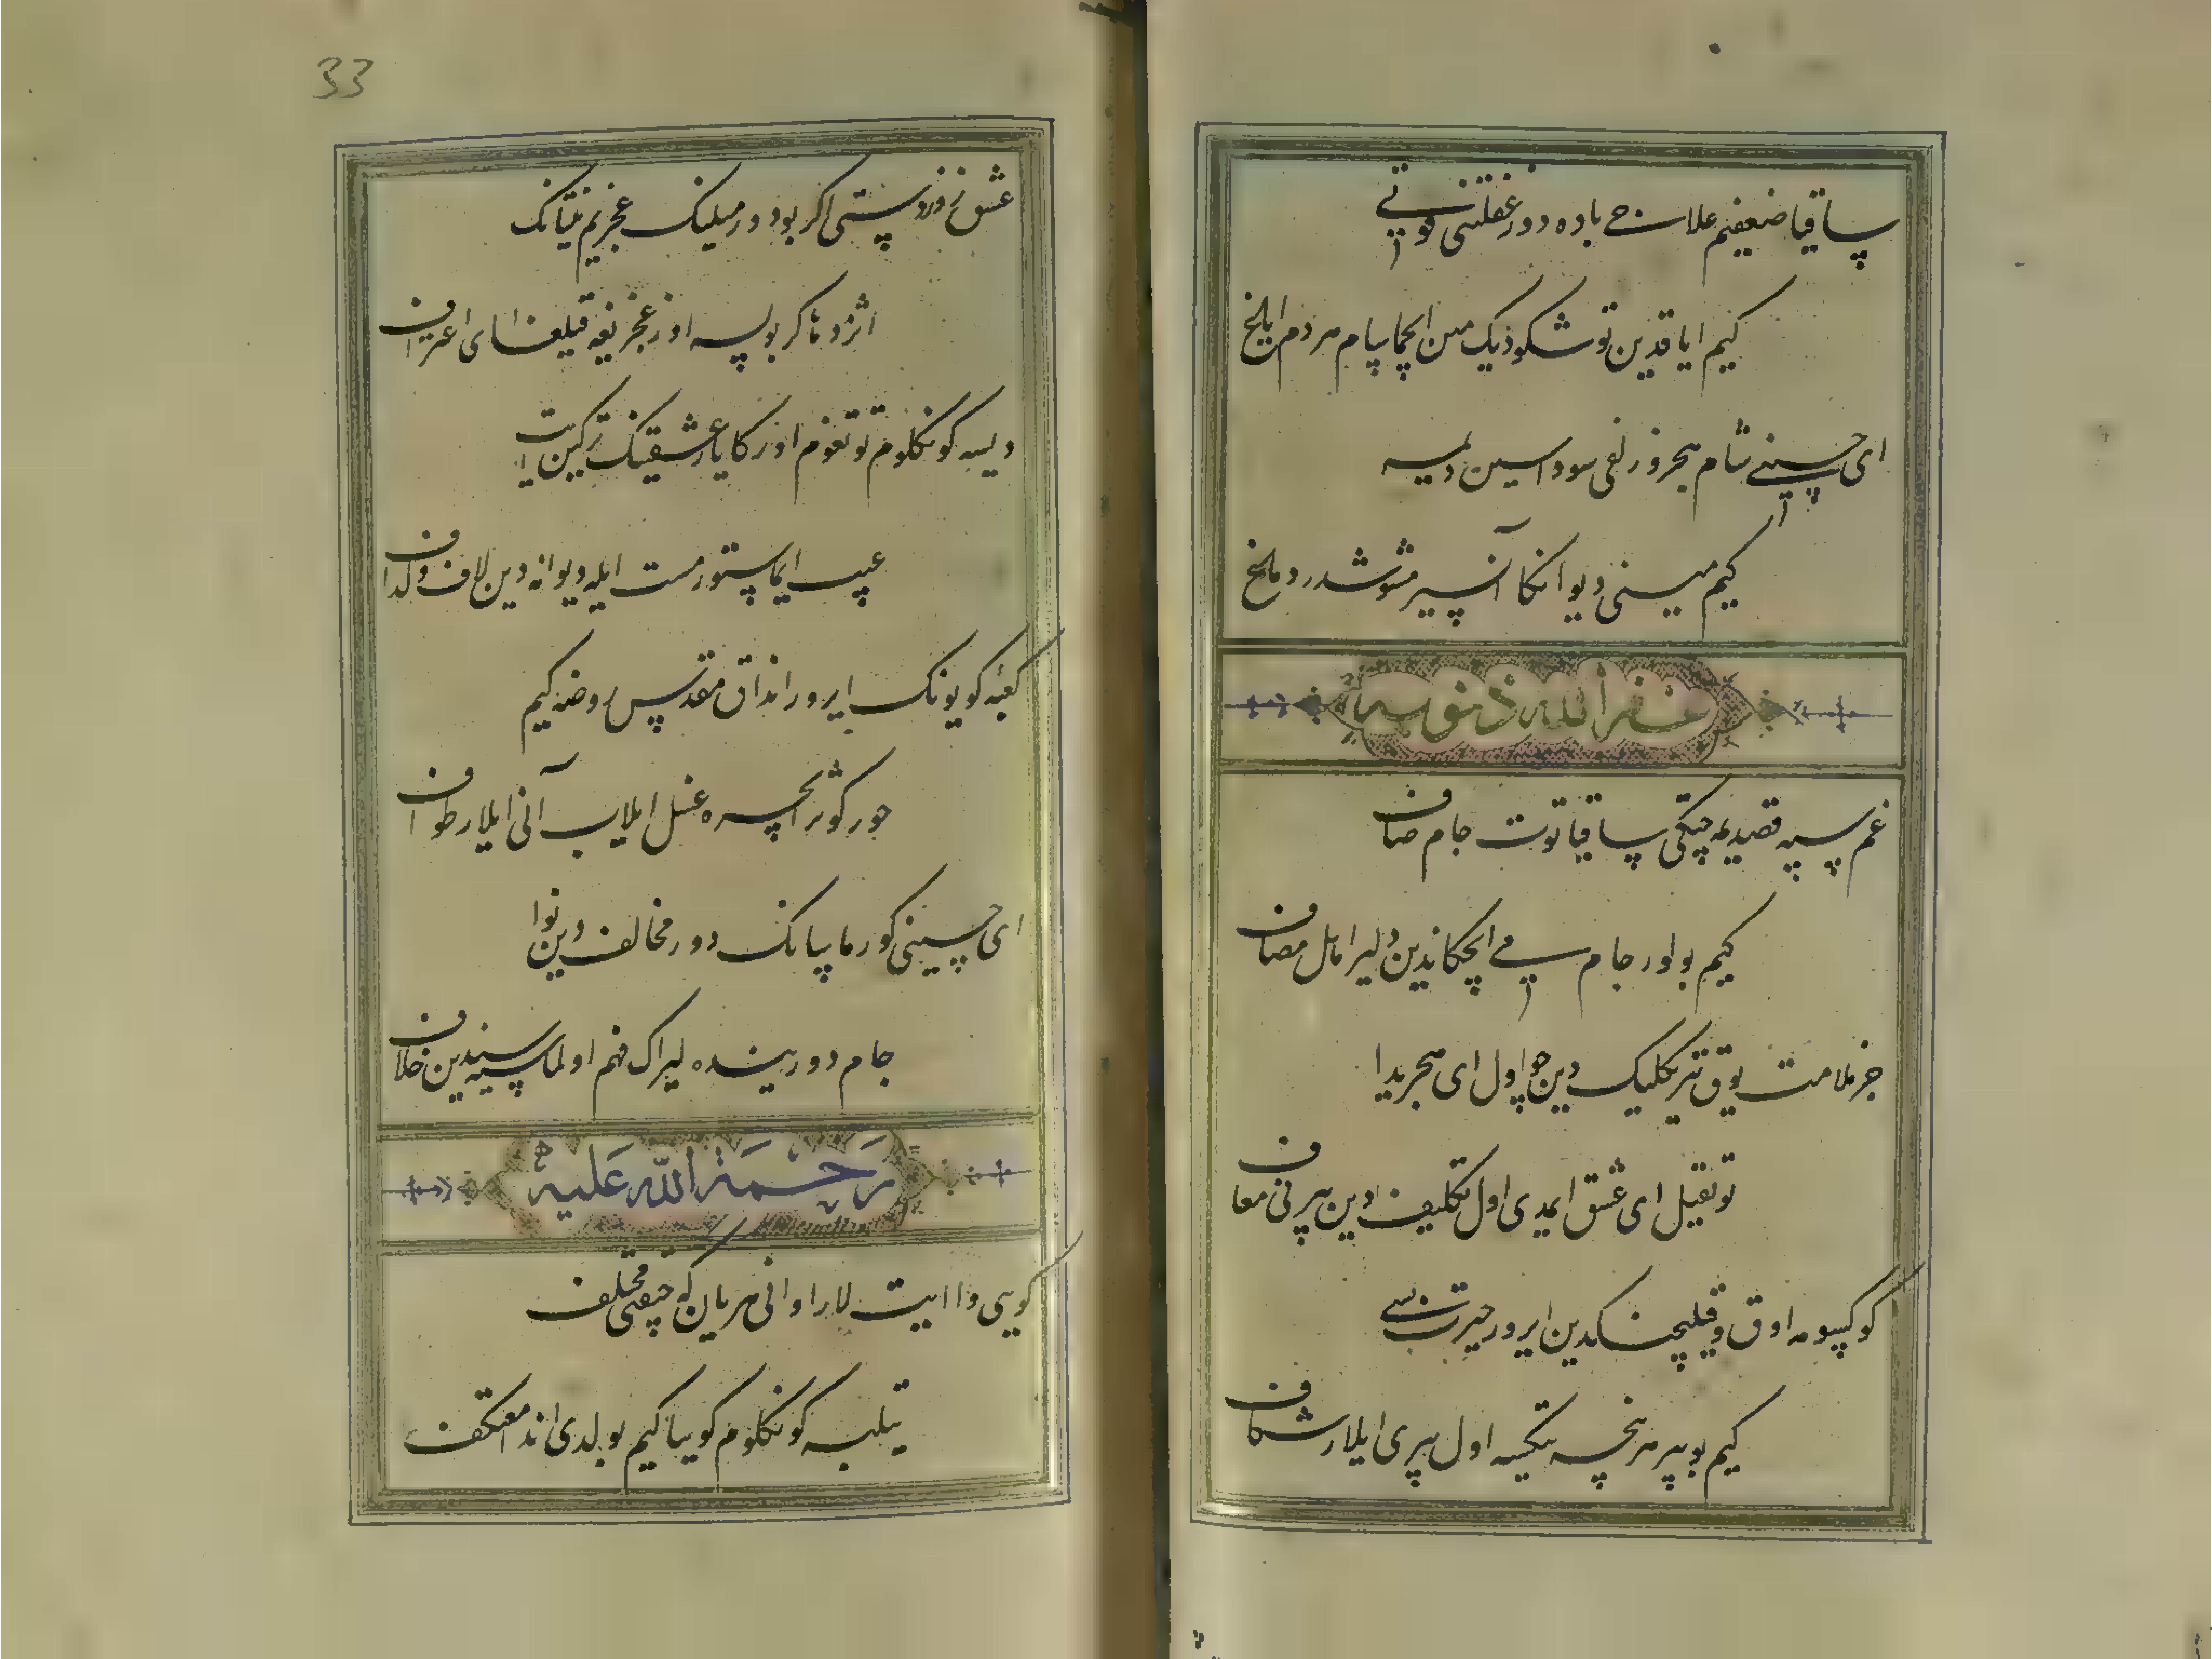 ساقیا ضعیفیم علاج باده دور غفلتنی قوی
کیم ایاقدین توشکودیک من ایچماسام هر دم ایلخ
ای حسینی شام هجر و زلفی سوداسین دیمه
کیم مینی دیوانکا آنسیز مشوشدر دماغ
غفرالله ذنوبه
غم سپه قصدیمه چیکتی ساقیا توت جام صاف
کیم بولور جام می ایچکاندین دلیرامل مصاف
جز ملامت یوق تیریکلیک دین جو اول ای هجریدا
توتقیل ای عشق ایمدی اول تکلیف دین بیرنی معاف
کوکسومه اوق و قیلیچینکدین ایرور حیرت نی
کیم بو بیر هر نیچه تیکسه اول بیری ایلار شکاف
33
عشق زوردستی اکر بودور میلینک عجزیم نینک
اژدها کر بولسه اوز عجزیغه قیلغای اعتراف
دیسه کونکلوم توتغوم اوزکا یار عشقینک ترکین ایت
عیب ایماستور مست ایله دیوانه دین لاف و کذاف
کعبهٔ کویونک ایرور انداق مقدس روضه کیم
حور کوثر ایچره غسل ایلاب آنی ایلار طواف
ای حسینی کورماسانک دور مخالف دین نوا
جام دوریندە لیراک فهم اولماسه سیندین خلاف
رحمة الله علیه
کویی دا ایت لار اوانی هریان که چیقتی مختلف
تیلبه کونکلوم کوییا کیم بولدی اندا معتکف